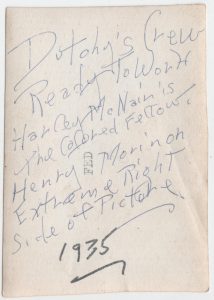 Dutchy's Crew
Ready To Work
Harley McNain is
the Colored Fellow.
Henry Morin on
Extreme Right
Side of Picture.
FED
1935